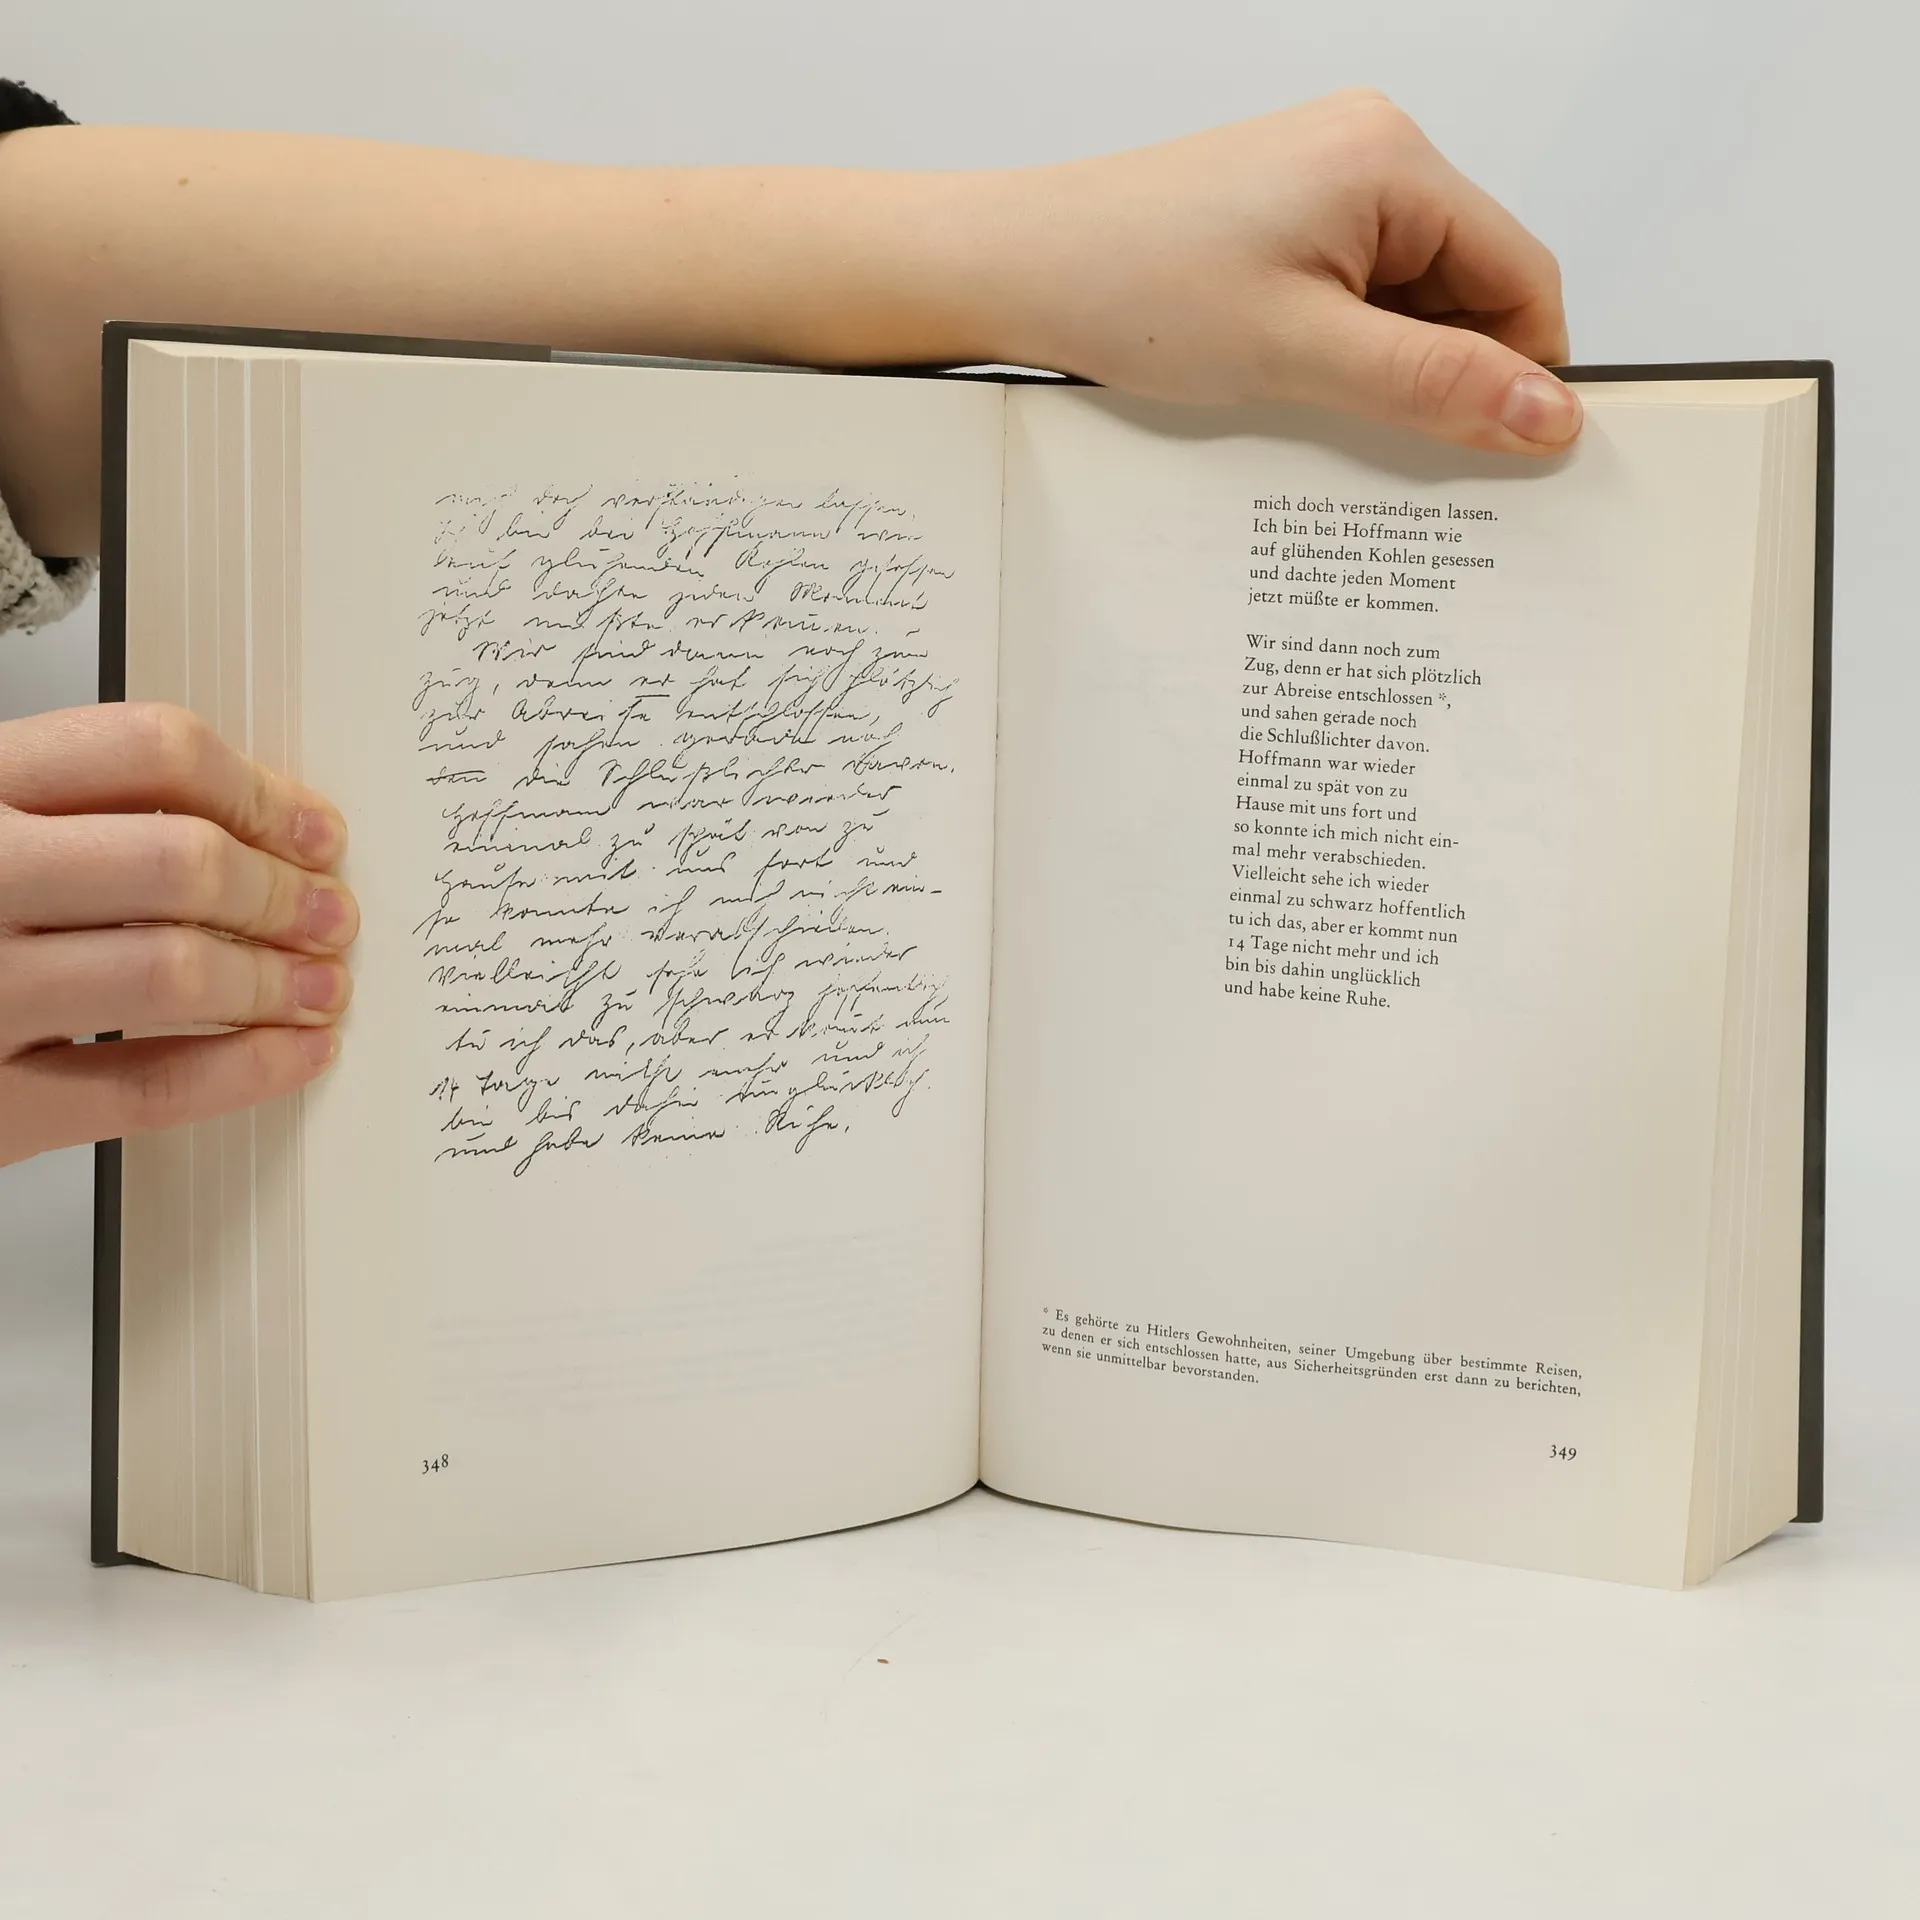 mich doch verständigen lassen.
Ich bin bei Hoffmann wie
auf glühenden Kohlen gesessen
und dachte jeden Moment
jetzt müßte er kommen. –
Wir sind dann noch zum
Zug, denn er hat sich plötzlich
zur Abreise entschlossen,
und sahen gerade noch
den die Schlußlichter davon.
Hoffmann war wieder
einmal zu spät von zu
Hause mit uns fort und
so konnte ich mich nicht ein-
mal mehr verabschieden.
Vielleicht sehe ich wieder
einmal zu schwarz hoffentlich
tu ich das, aber er kommt nun
14 Tage nicht mehr und ich
bin bis dahin unglücklich
und habe keine Ruhe.
348
mich doch verständigen lassen.
Ich bin bei Hoffmann wie
auf glühenden Kohlen gesessen
und dachte jeden Moment
jetzt müßte er kommen.
Wir sind dann noch zum
Zug, denn er hat sich plötzlich
zur Abreise entschlossen *,
und sahen gerade noch
die Schlußlichter davon.
Hoffmann war wieder
einmal zu spät von zu
Hause mit uns fort und
so konnte ich mich nicht ein-
mal mehr verabschieden.
Vielleicht sehe ich wieder
einmal zu schwarz hoffentlich
tu ich das, aber er kommt nun
14 Tage nicht mehr und ich
bin bis dahin unglücklich
und habe keine Ruhe.
* Es gehörte zu Hitlers Gewohnheiten, seiner Umgebung über bestimmte Reisen,
zu denen er sich entschlossen hatte, aus Sicherheitsgründen erst dann zu berichten,
wenn sie unmittelbar bevorstanden.
349